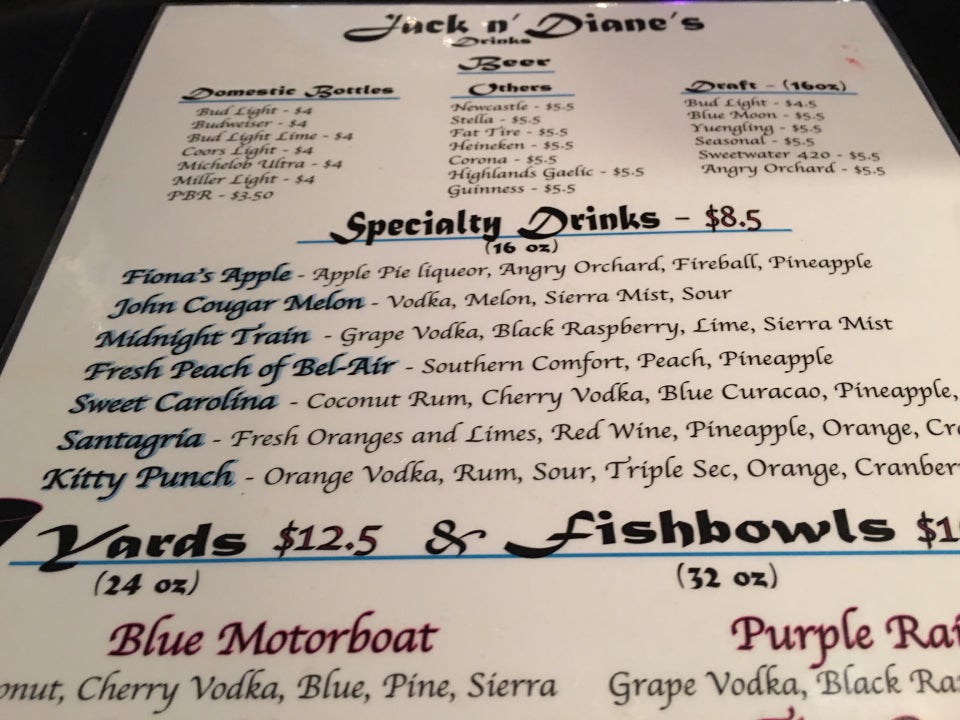 Jack n' Diane's
Drinks
Beer
Domestic Bottles
Bud Light - $4
Budweiser - $4
Bud Light Lime - $4
Coors Light - $4
Michelob Ultra - $4
Miller Light - $4
PBR - $3.50
Others
Newcastle - $5.5
Stella - $5.5
Fat Tire - $5.5
Heineken - $5.5
Corona - $5.5
Highlands Gaelic - $5.5
Guinness - $5.5
Draft - (16oz)
Bud Light - $4.5
Blue Moon - $5.5
Yuengling - $5.5
Seasonal - $5.5
Sweetwater 420 - $5.5
Angry Orchard - $5.5
Specialty Drinks - $8.5
(16 oz)
Fiona's Apple - Apple Pie liqueor, Angry Orchard, Fireball, Pineapple
John Cougar Melon - Vodka, Melon, Sierra Mist, Sour
Midnight Train - Grape Vodka, Black Raspberry, Lime, Sierra Mist
Fresh Peach of Bel-Air - Southern Comfort, Peach, Pineapple
Sweet Carolina - Coconut Rum, Cherry Vodka, Blue Curacao, Pineapple,
Santagria - Fresh Oranges and Limes, Red Wine, Pineapple, Orange,
Kitty Punch - Orange Vodka, Rum, Sour, Triple Sec, Orange,
Yards $12.5 & Fishbowls
(24 oz)
(32 oz)
Blue Motorboat
Cherry Vodka, Blue, Pine, Sierra
Purple
Grape Vodka, Black